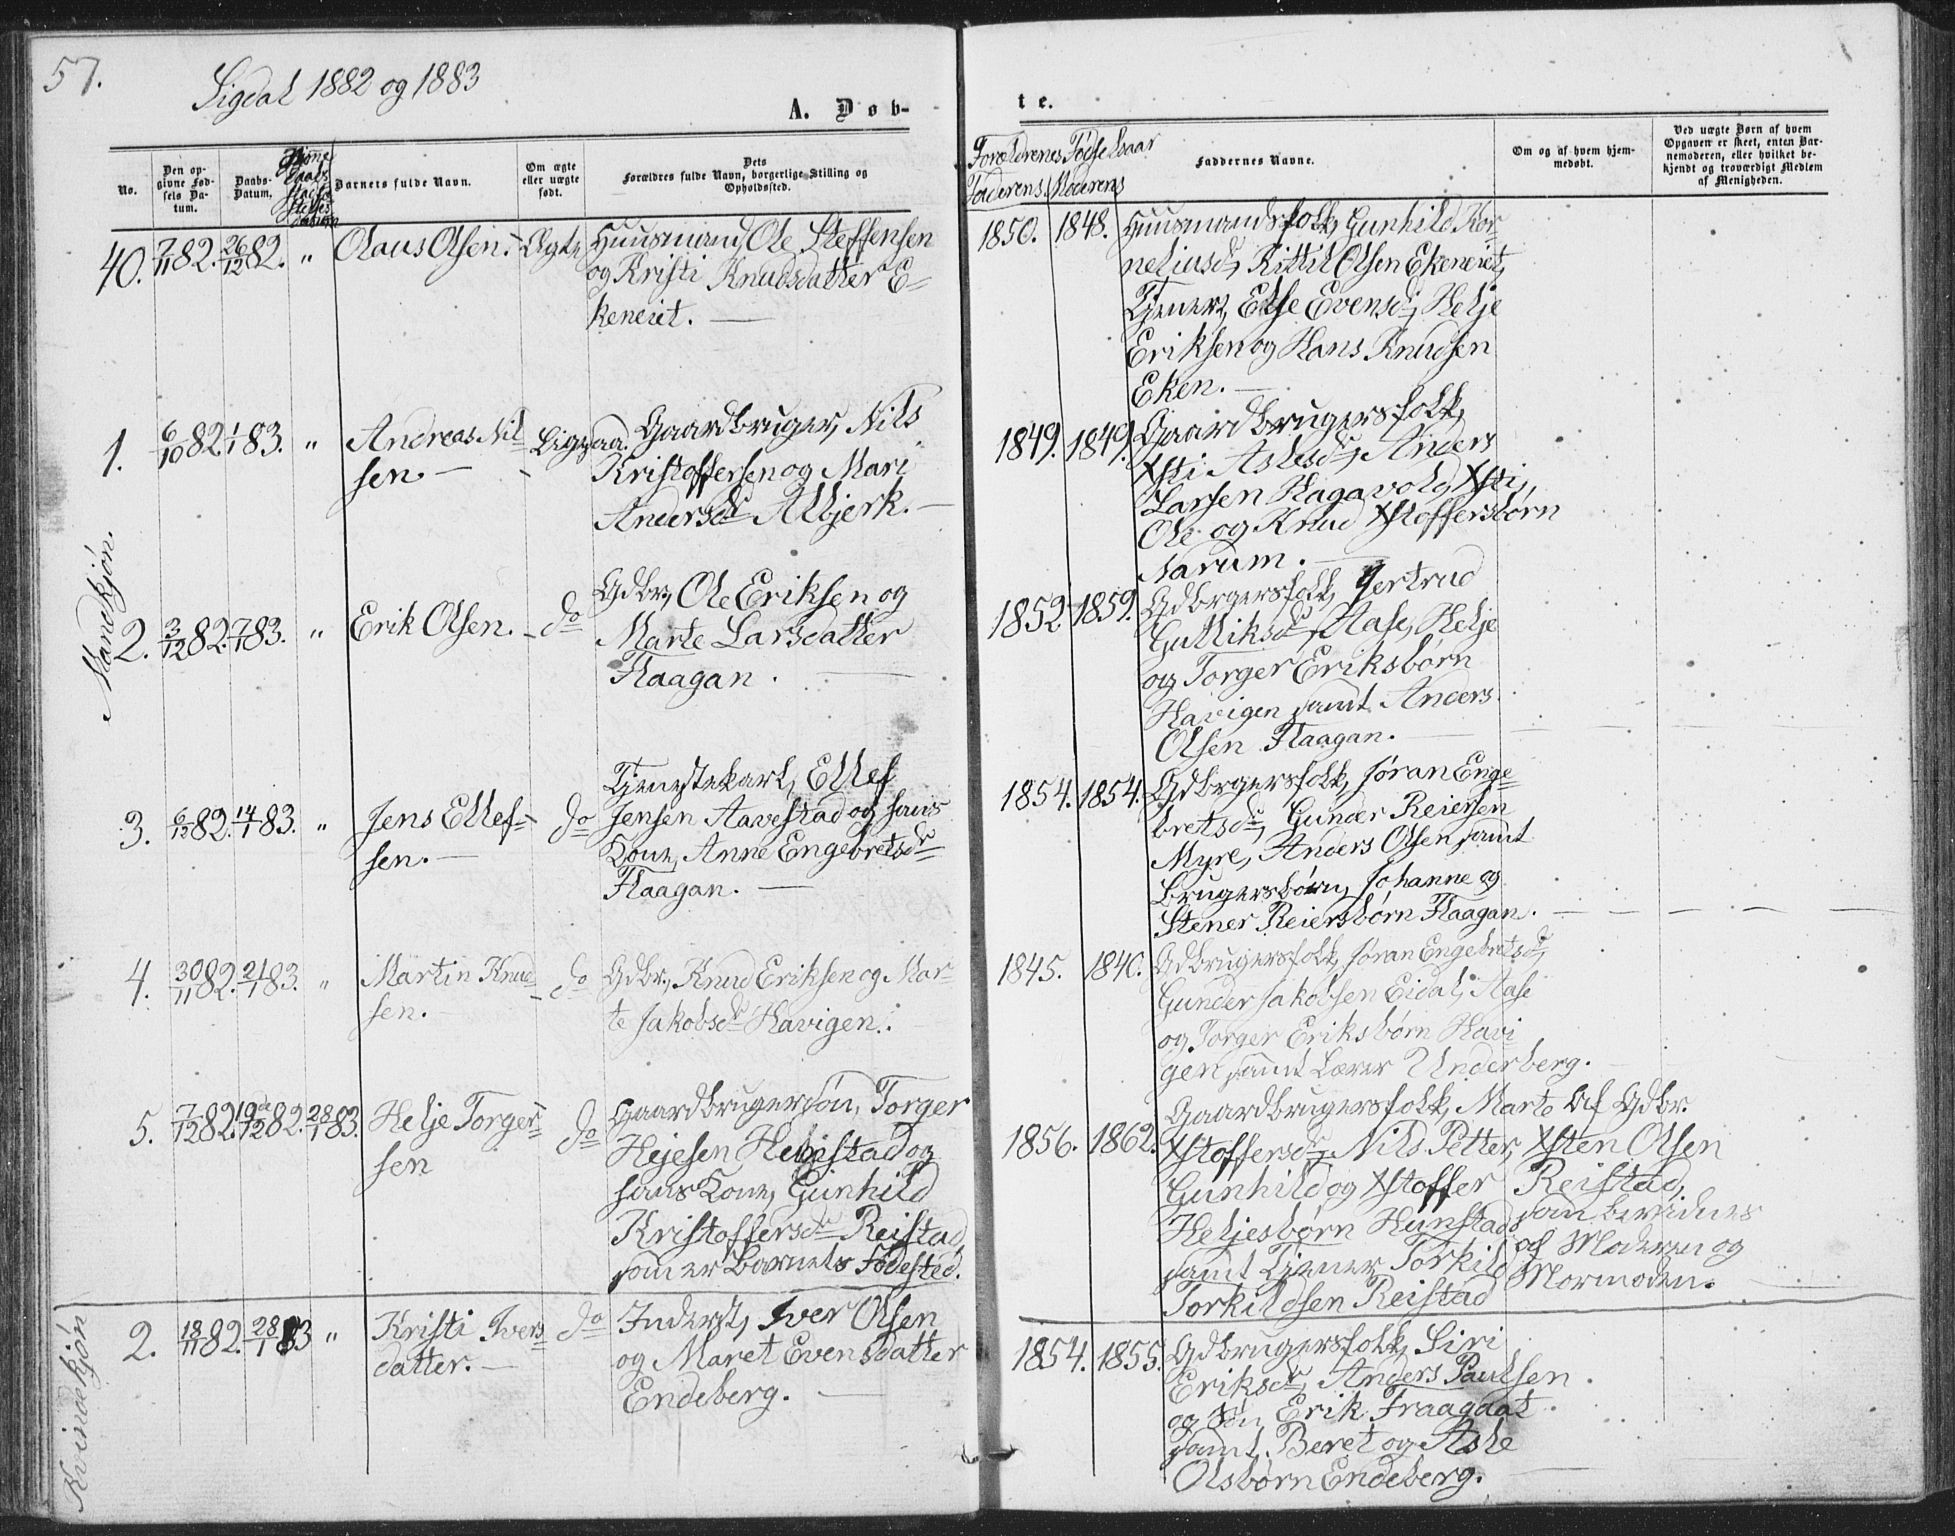 57.
Sigdal 1882 og 1883
A. Døb-
te.
No.
Den op-
givne Fød-
sels Da-
tum.
Daabs-
Datum.
Barnets fulde Navn.
Om ægte
eller uægte
født.
Dets
Forældres fulde Navn, borgerlige Stilling og
Opholdssted.
Forældrenes Fødselsaar
Faderens Moderens
Faddernes Navne.
Om og af hvem hjem-
medøbt.
Ved uægte Børn af hvem
Opgaven er skeet, enten Bar-
nemoderen, eller hvilket be-
kjendt og troværdigt Medlem
af Menigheden.
40. 7/11 82. 26/12 82. " Olaus Olsen. - Ægte
Huusmand Ole Steffensen
og Kristi Knudsdatter E-
keneiet. —
1850. 1848.
Huusmandsfolk, Gunhild Kor
neliusdr, Kittil Olsen Ekeneiet,
Tjener, Else Evensdr, Helje
Eriksen og Hans Knudsen
Eken. —
Mandkjøn.
1. 6/10 82 1/1 83. " Andreas Nil-
sen. —
Ligesaa.
Gaardbruger, Nils
Kristoffersen og Mari
Andersdr Albjerk. —
1849. 1849.
Gaardbrugersfolk,
Xsti Aslesdr, Anders
Larsen Hagavold, Xsti,
Ole og Knud Xstoffersbørn
Narum. —
2. 3/12 82. 7/1 83. " Erik Olsen. - do
Gdbr, Ole Eriksen og
Marte Larsdatter
Flaagan. —
1852 1859.
Gdbrgersfolk, Gertrud
Gulliksdr, Aase, Helje
og Torger Eriksbørn
Havigen samt Anders
Olsen Flaagan. —
3. 6/12 82. 14/1 83. " Jens Ellef-
sen. —
do
Tjenestekarl, Ellef
Jensen Aavestad og hans
Kone, Anne Engebretsdr
Flaagan. —
1854. 1854.
Gdbrgersfolk, Jøran Enge-
bretsdr, Gunder Reiersen
Myre, Anders Olsen samt
Brugersbørn, Johanne og
Stener Reiersbørn Flaagan.
4. 30/11 82. 21/1 83. " Martin Knud-
sen. —
do
Gdbr, Knud Eriksen og Mar-
te Jakobsdr Havigen.
1845. 1840.
Gdbrugersfolk, Jøran Engebretsdr,
Gunder Jakobsen Eidal, Aase
og Torger Eriksbørn Havi
gen samt Lærer Underberg.
5. 7/12 82. 19de/12 82. 28/1 83. Helje Torger-
sen
do
Gaardbrugersøn, Torger
Hejesen
hans Kone, Gunhild
Kristoffersdr Reistad
som er Barnets Fødested.
1856. 1862.
Gaardbrugersfolk, Marte
Xstoffersdr, Nils Petter,
Gunhild og Xstoffer
Heljesbørn Hunstad
samt Tjener Torkild
Torkildsen Reistad
Af Gdbr.
Xsten Olsen
Reistad,
som bevidnes
af Moderen og
Mormoderen.
Kvindekjøn
2. 18/11 82. 28/1 83 " Kristi Ivers-
datter. —
do
Inderst, Iver Olsen
og Maret Evensdatter
Endeberg. —
1854. 1855.
Gdbrugersfolk, Siri
Eriksdr, Anders Paulsen
og Søn Erik Fraagaat
samt Beret og Asle
Olsbørn Endeberg.